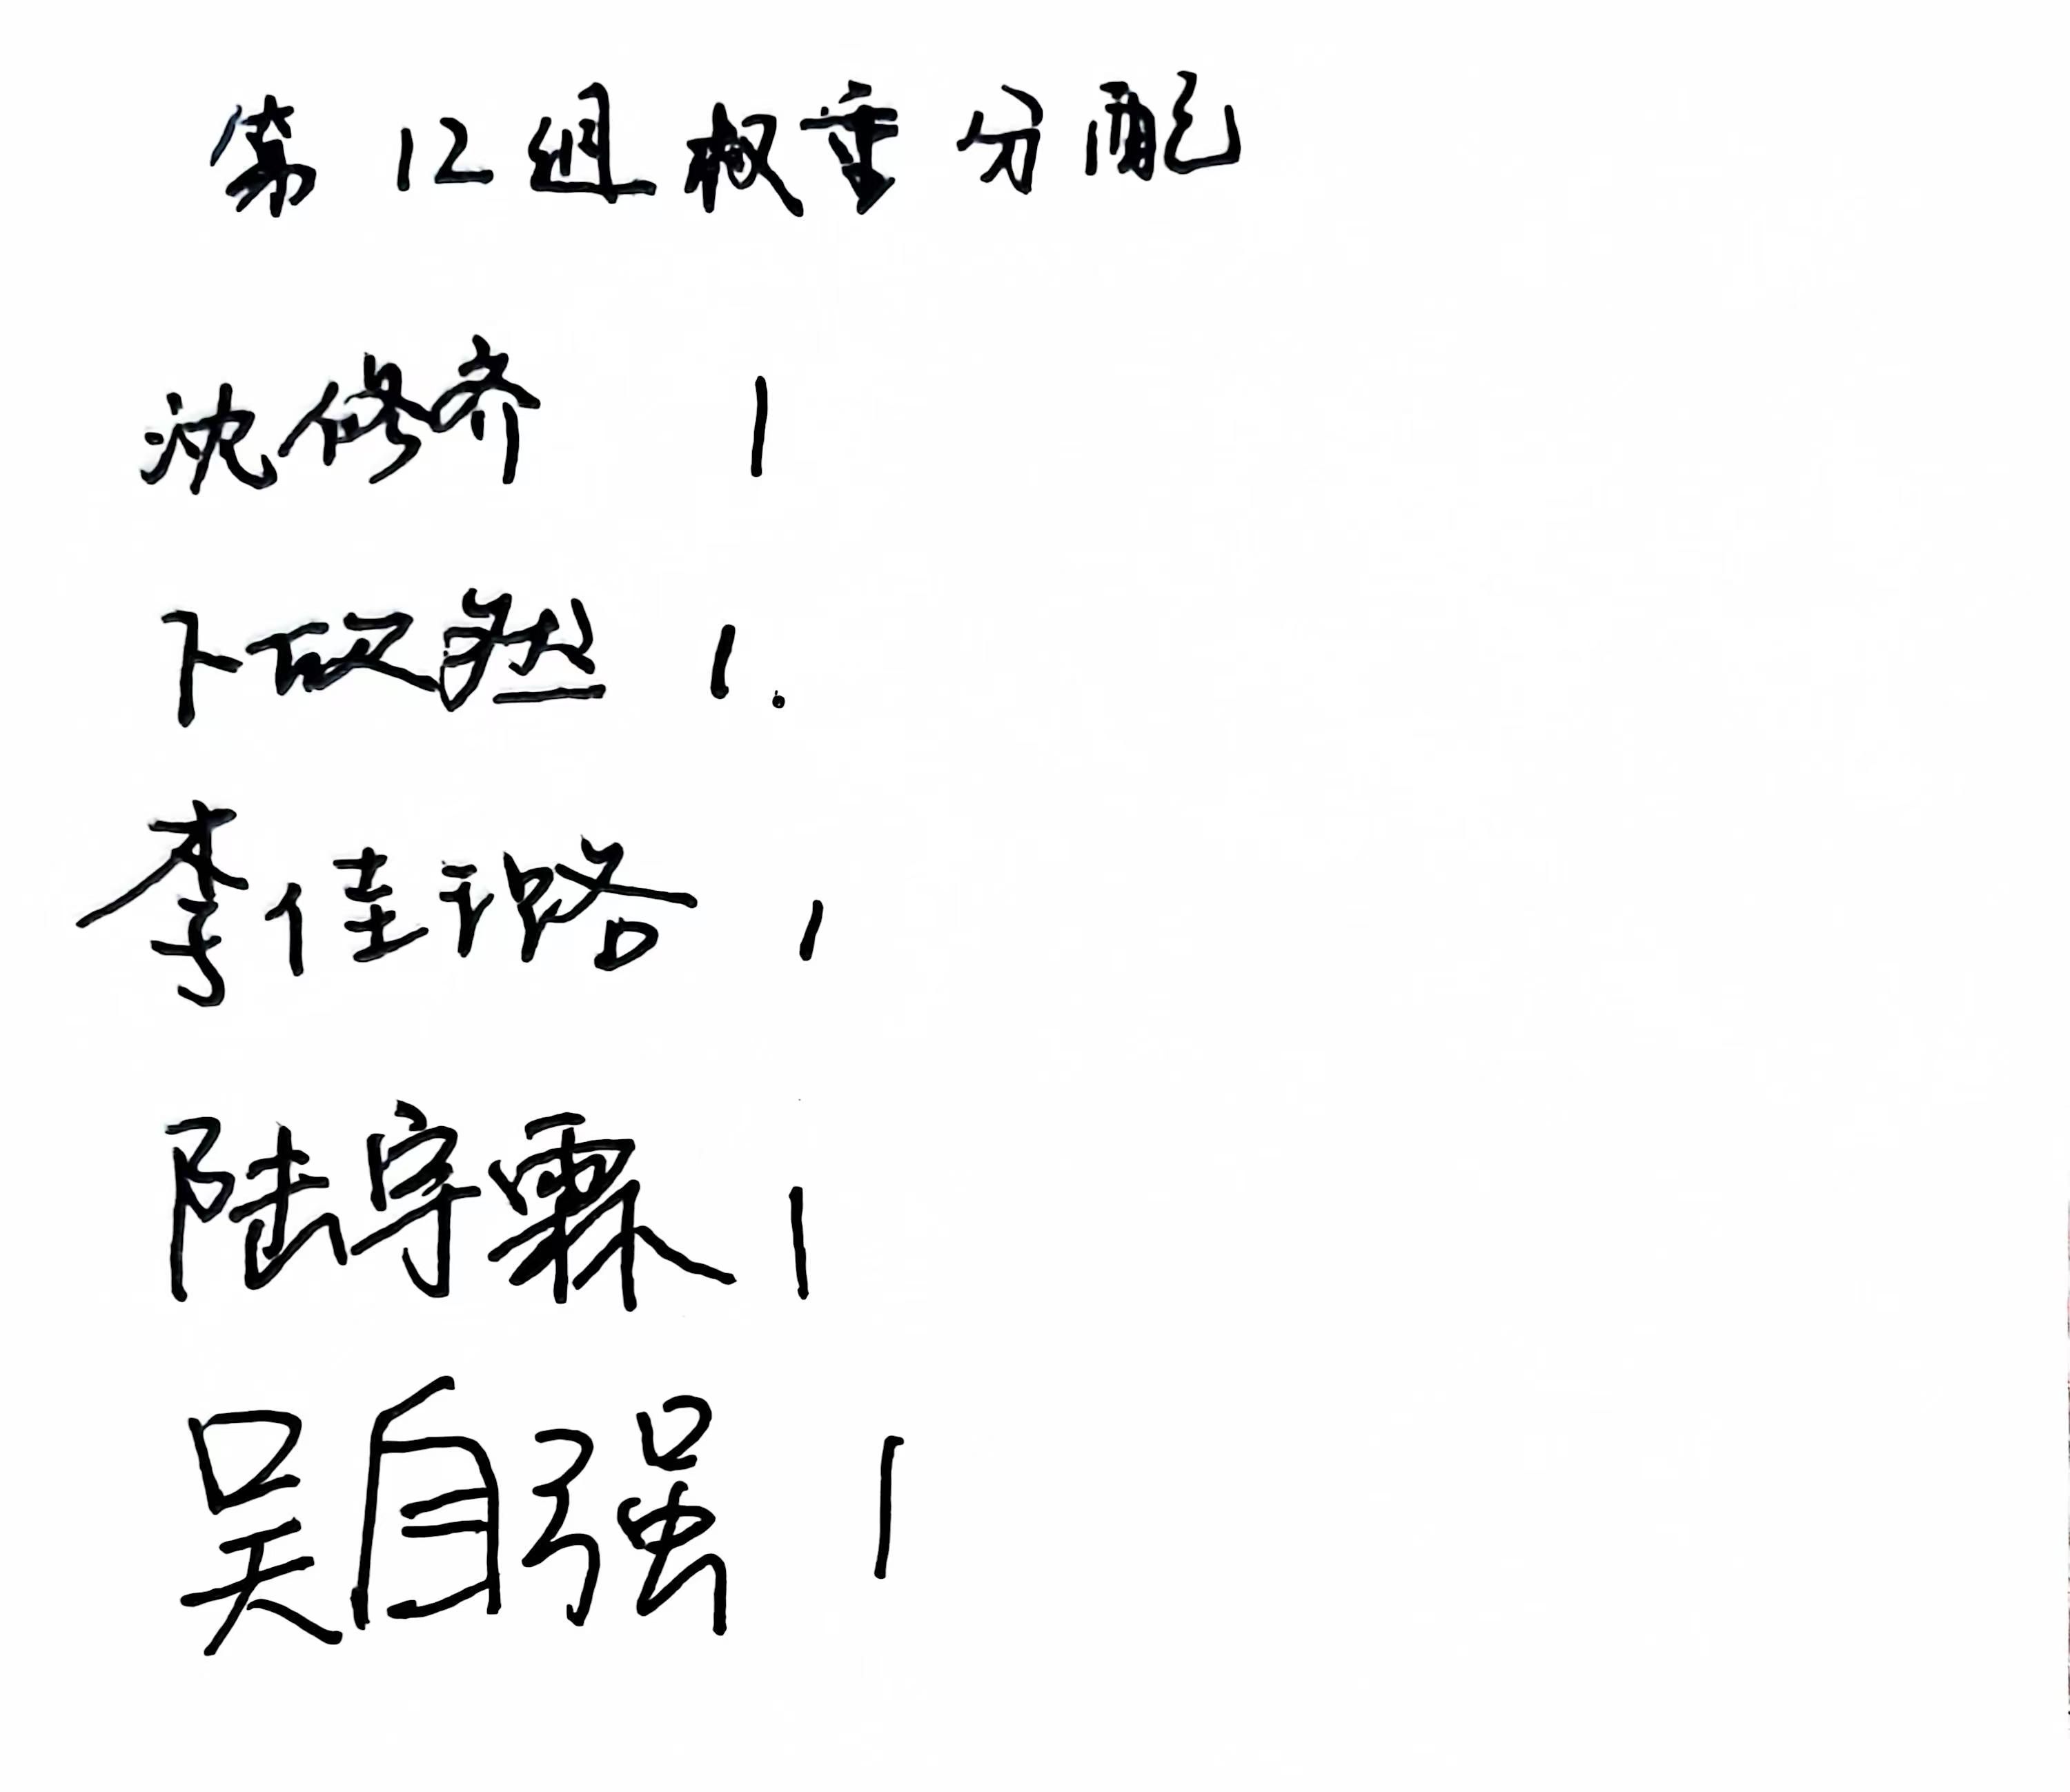 第12组权重分配
沈修齐 1
卜 1.
李佳 1
陆宇霖 1
吴自强 1